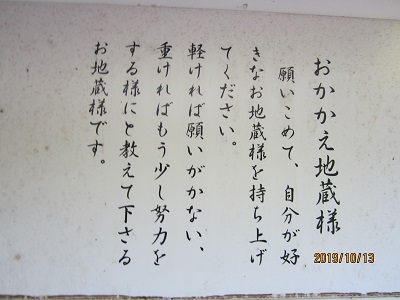 おかかえ地蔵様
願いこめて、自分が好
きなお地蔵様を持ち上げ
てください。
軽ければ願いがかない、
重ければもう少し努力を
する様にと教えて下さる
お地蔵様です。
2019/10/13